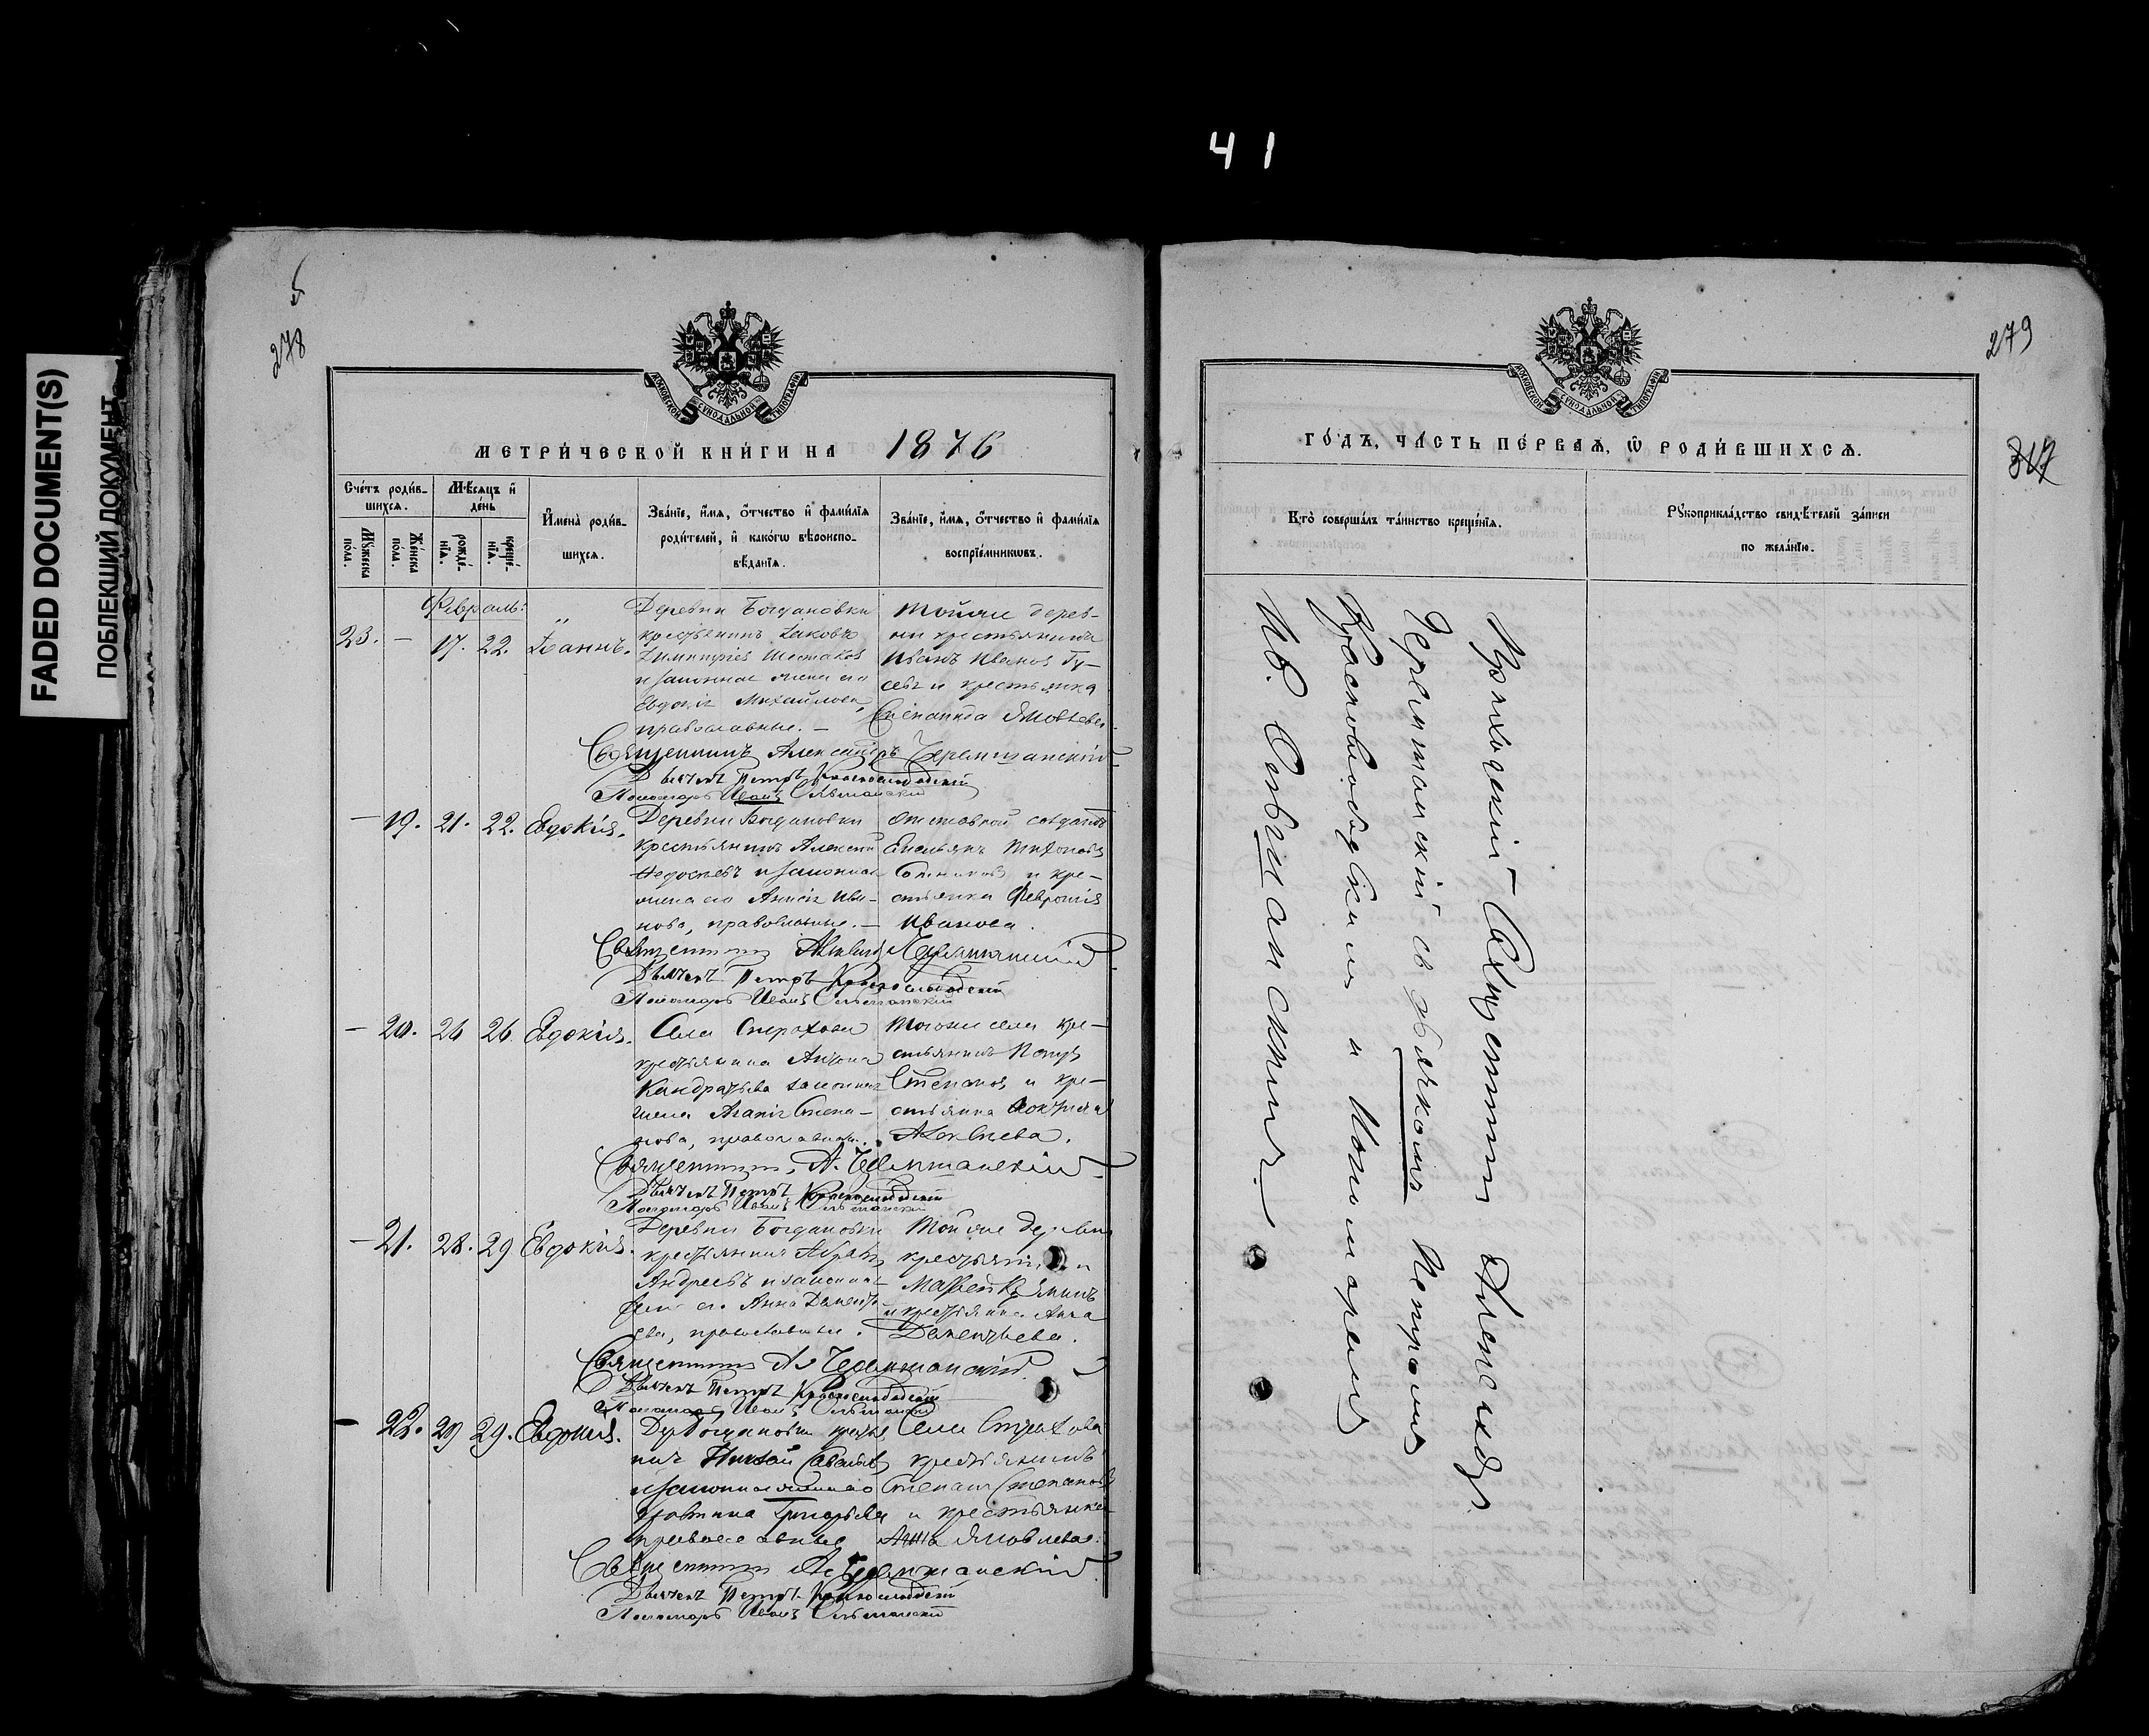 41
FADED DOCUMENT(S)
ПОБЛЕКШИЙ ДОКУМЕНТ
5
278
МОСКОВСКОЙ СѴНОДАЛЬНОЙ ТИПОГРАФІИ
МЕТРИ́ЧЕСКОЙ КНИ́ГИ НА 1876
Сче́тъ роди́в-
шихсѧ.
Мѣ́сѧцъ и҆
де́нь
И҆мена̀ роди́в-
шихсѧ.
Зва́нїе, и҆́мѧ, ѻ҆́тчество и҆ фами́лїѧ
роди́телей, и҆ како́гѡ вѣроиспо-
вѣ́данїѧ.
Зва́нїе, и҆́мѧ, ѻ҆́тчество и҆ фами́лїѧ
воспрїе́мникѡвъ.
Мꙋ́жеска
по́ла.
Же́нска
по́ла.
рожде́-
нїѧ.
креще́-
нїѧ.
Февраль:
23. — 17. 22. Іоаннъ.
Деревни Богдановки
крестьянинъ Іаковъ
Димитріевъ Шестаковъ
и законная жена его
Евдокія Михайлова,
православные. —
Тойже дерев-
ни крестьянинъ
Иванъ Ивановъ Гу-
севъ и крестьянка
Степанида Яковлева.
Священникъ Александръ Черемшанскій
Дьячекъ Петръ Краснослободскій
Пономарь Иванъ Сельманскій
— 19. 21. 22. Евдокія.
Деревни Богдановки
крестьянинъ Алексей
и законная
жена его Анисія Ива-
нова, православные. —
отставной солдатъ
Емельянъ
и кре-
стьянка Февронія
Иванова.
Священникъ Александръ Черемшанскій
Дьячекъ Петръ Краснослободскій
Пономарь Иванъ Сельманскій
— 20. 26 26. Евдокія.
Села Страхова
крестьянина Антона
Кандратьева законная
жена Агапія Степа-
нова, православная.
Тогоже села кре-
стьянинъ
Степановъ и кре-
стьянка
Алексеева.
Священникъ А. Черемшанскій
Дьячекъ Петръ Краснослободскій
Пономарь Иванъ Сельманскій
— 21. 28. 29 Евдокія.
Деревни Богдановки
крестьянинъ
Андреевъ и законная
жена его Анна Демент-
ева, православные.
Тойже деревни
крестьянинъ
и крестьянка Анна
Дементьева.
Священникъ Ал Черемшанскій.
Дьячекъ Петръ Краснослободскій
Пономарь Иванъ Сельманскій
— 22. 29 29. Евдокія.
Дер Богдановки крестья
нинъ
и законная жена его
Григорьева
православные
Села Страхова
крестьянинъ
Степанъ Степановъ
и крестьянка
Анна Яковлева.
Священникъ Ал Черемшанскій
Дьячекъ Петръ Краснослободскій
Пономарь Иванъ Сельманскій
279
317
МОСКОВСКОЙ СѴНОДАЛЬНОЙ ТИПОГРАФІИ
ГО́ДЪ, ЧА́СТЬ ПЕ́РВАѦ, Ѡ҆ РОДИ́ВШИХСѦ.
Кто̀ соверша́лъ та́инство креще́нїѧ.
Рꙋкоприкла́дство свидѣ́телей за́писи
по жела́нїю.
Приходскій Священникъ Александръ
Черемшанскій съ дьячкомъ Петромъ
Краснослободскимъ и Пономаремъ
Ив. Сельманскимъ. —